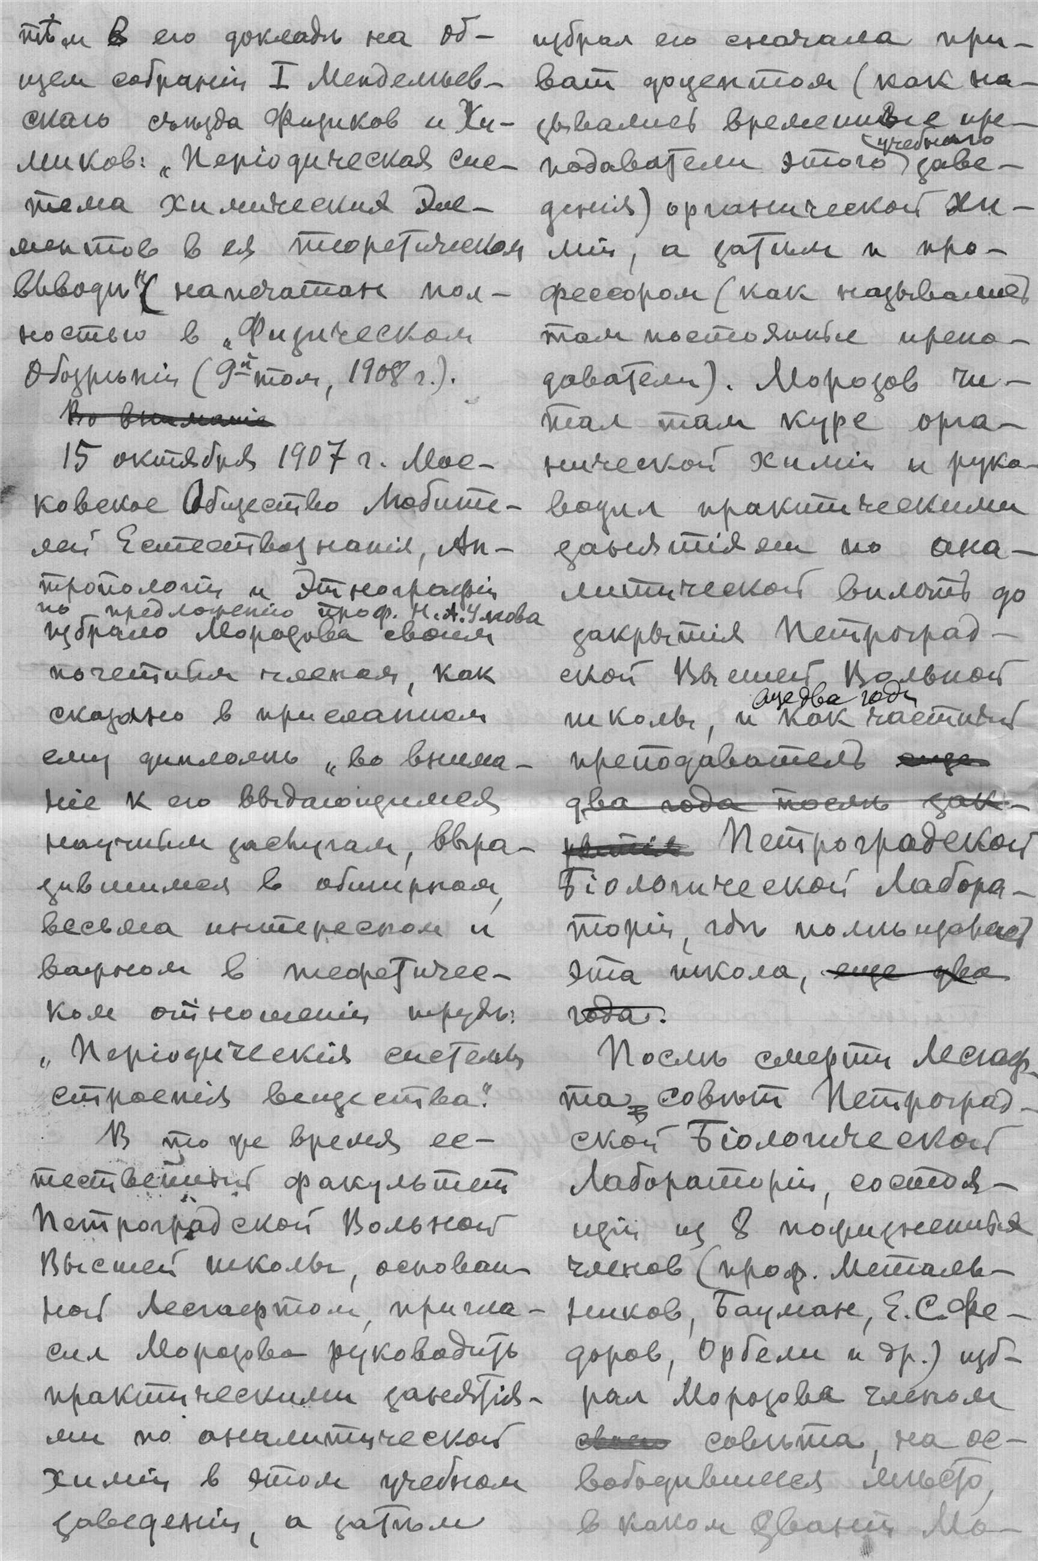 тѣм в его докладѣ на об-
щем собранiи I Менделѣев-
скаго съѣзда Физиков и Хи-
миков: „Перiодическая сис-
тема химических эле-
ментов в ея теоретическом
выводѣ" (напечатан пол-
ностью в „Физическом
Обозрѣнiи (9й том, 1908 г.).
Во вниманiе
15 октября 1907 г. Мос-
ковское Общество Любите-
лей Естествознанiя, Ан-
тропологiи и Этнографiи
по предложенiю проф. Н. А. Умова
избрало Морозова своим
почетным членом, как
сказано в присланном
ему дипломѣ „во внима-
нiе к его выдающимся
научным заслугам, выра-
зившимся в обширном,
весьма интересном и
важном в теоретичес-
ком отношенiи трудѣ:
„Перiодическiя системы
строенiя вещества".
В то же время ес-
тественный факультет
Петроградской Вольной
Высшей школы, основан-
ной Лесгафтом, пригла-
сил Морозова руководить
практическими занятiя-
ми по аналитической
химiи в этом учебном
заведенiи, а затѣм
избрал его сначала при-
ват доцентом (как на-
зывались временные пре-
учебнаго
подаватели этого заве-
денiя) органической хи-
мiи, а затѣм и про-
фессором (как назывались
там постоянные препо-
даватели). Морозов чи-
тал там курс орга-
нической химiи и руко-
водил практическими
занятiями по ана-
литической вплоть до
закрытiя Петроград-
ской Высшей Вольной
еще два года
школы, и как частный
преподаватель еще
два года послѣ зак-
рытiя Петроградской
Бiологической Лабора-
торiи, гдѣ помѣщалась
эта школа, еще два
года.
Послѣ смерти Лесгаф-
та совѣт Петроград-
ской Бiологической
Лабораторiи, состоя-
щiй из 8 пожизненных
членов (проф. Металь-
ников, Бауман, Е. С. Фе-
доров, Орбели и др.) изб-
рал Морозова членом
своего совѣта, на ос-
вободившееся мѣсто,
в каком званiи Мо-